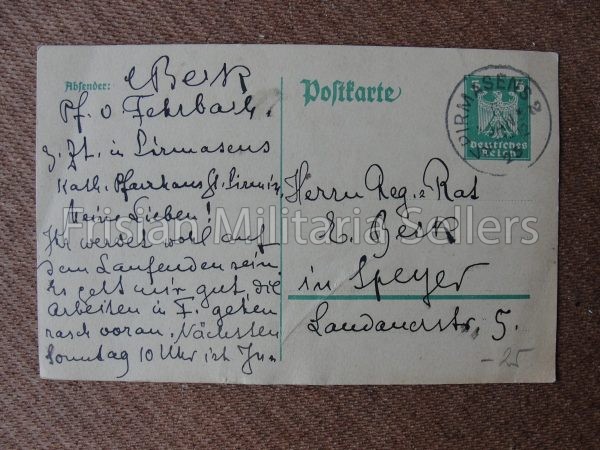 Absender:
Berk
Pf. v Fehrbach.
z. Zt. in Pirmasens
Kath. Pfarrhaus St. Pirmin.
Meine Lieben!
Ihr werdet wohl auf
dem Laufenden sein.
Es geht mir gut, die
Arbeiten in F. gehen
rasch voran. Nächsten
Sonntag 10 Uhr ist
Postkarte
PIRMASENS 2
Deutsches
Reich
Herrn Reg. Rat
E. Berk
in Speyer
Landauerstr. 5.
-25
Frisian Militaria Sellers